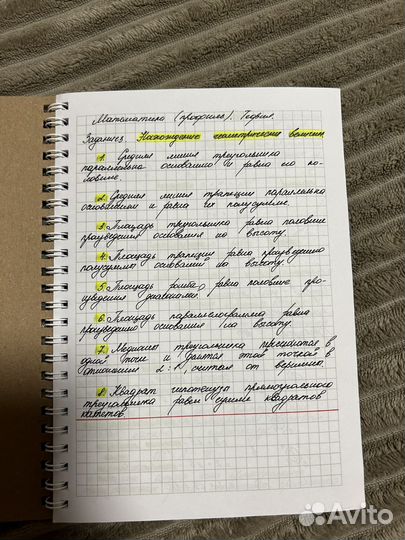 Математика (профиль). Теория.
Задание 3. Нахождение геометрических величин
1. Средняя линия треугольника
параллельна основанию и равна его по-
ловине.
2. Средняя линия трапеции параллельна
основаниям и равна их полусумме.
3. Площадь треугольника равна половине
произведения основания на высоту.
4. Площадь трапеции равна произведению
полусуммы оснований на высоту.
5. Площадь ромба равна половине про-
изведения диагоналей.
6. Площадь параллелограмма равна
произведению основания на высоту.
7. Медианы треугольника пресекаются в
одной точке и делятся этой точкой в
отношении 2:1, считая от вершины.
8. Квадрат гипотенузы прямоугольного
треугольника равен сумме квадратов
катетов.
Avito